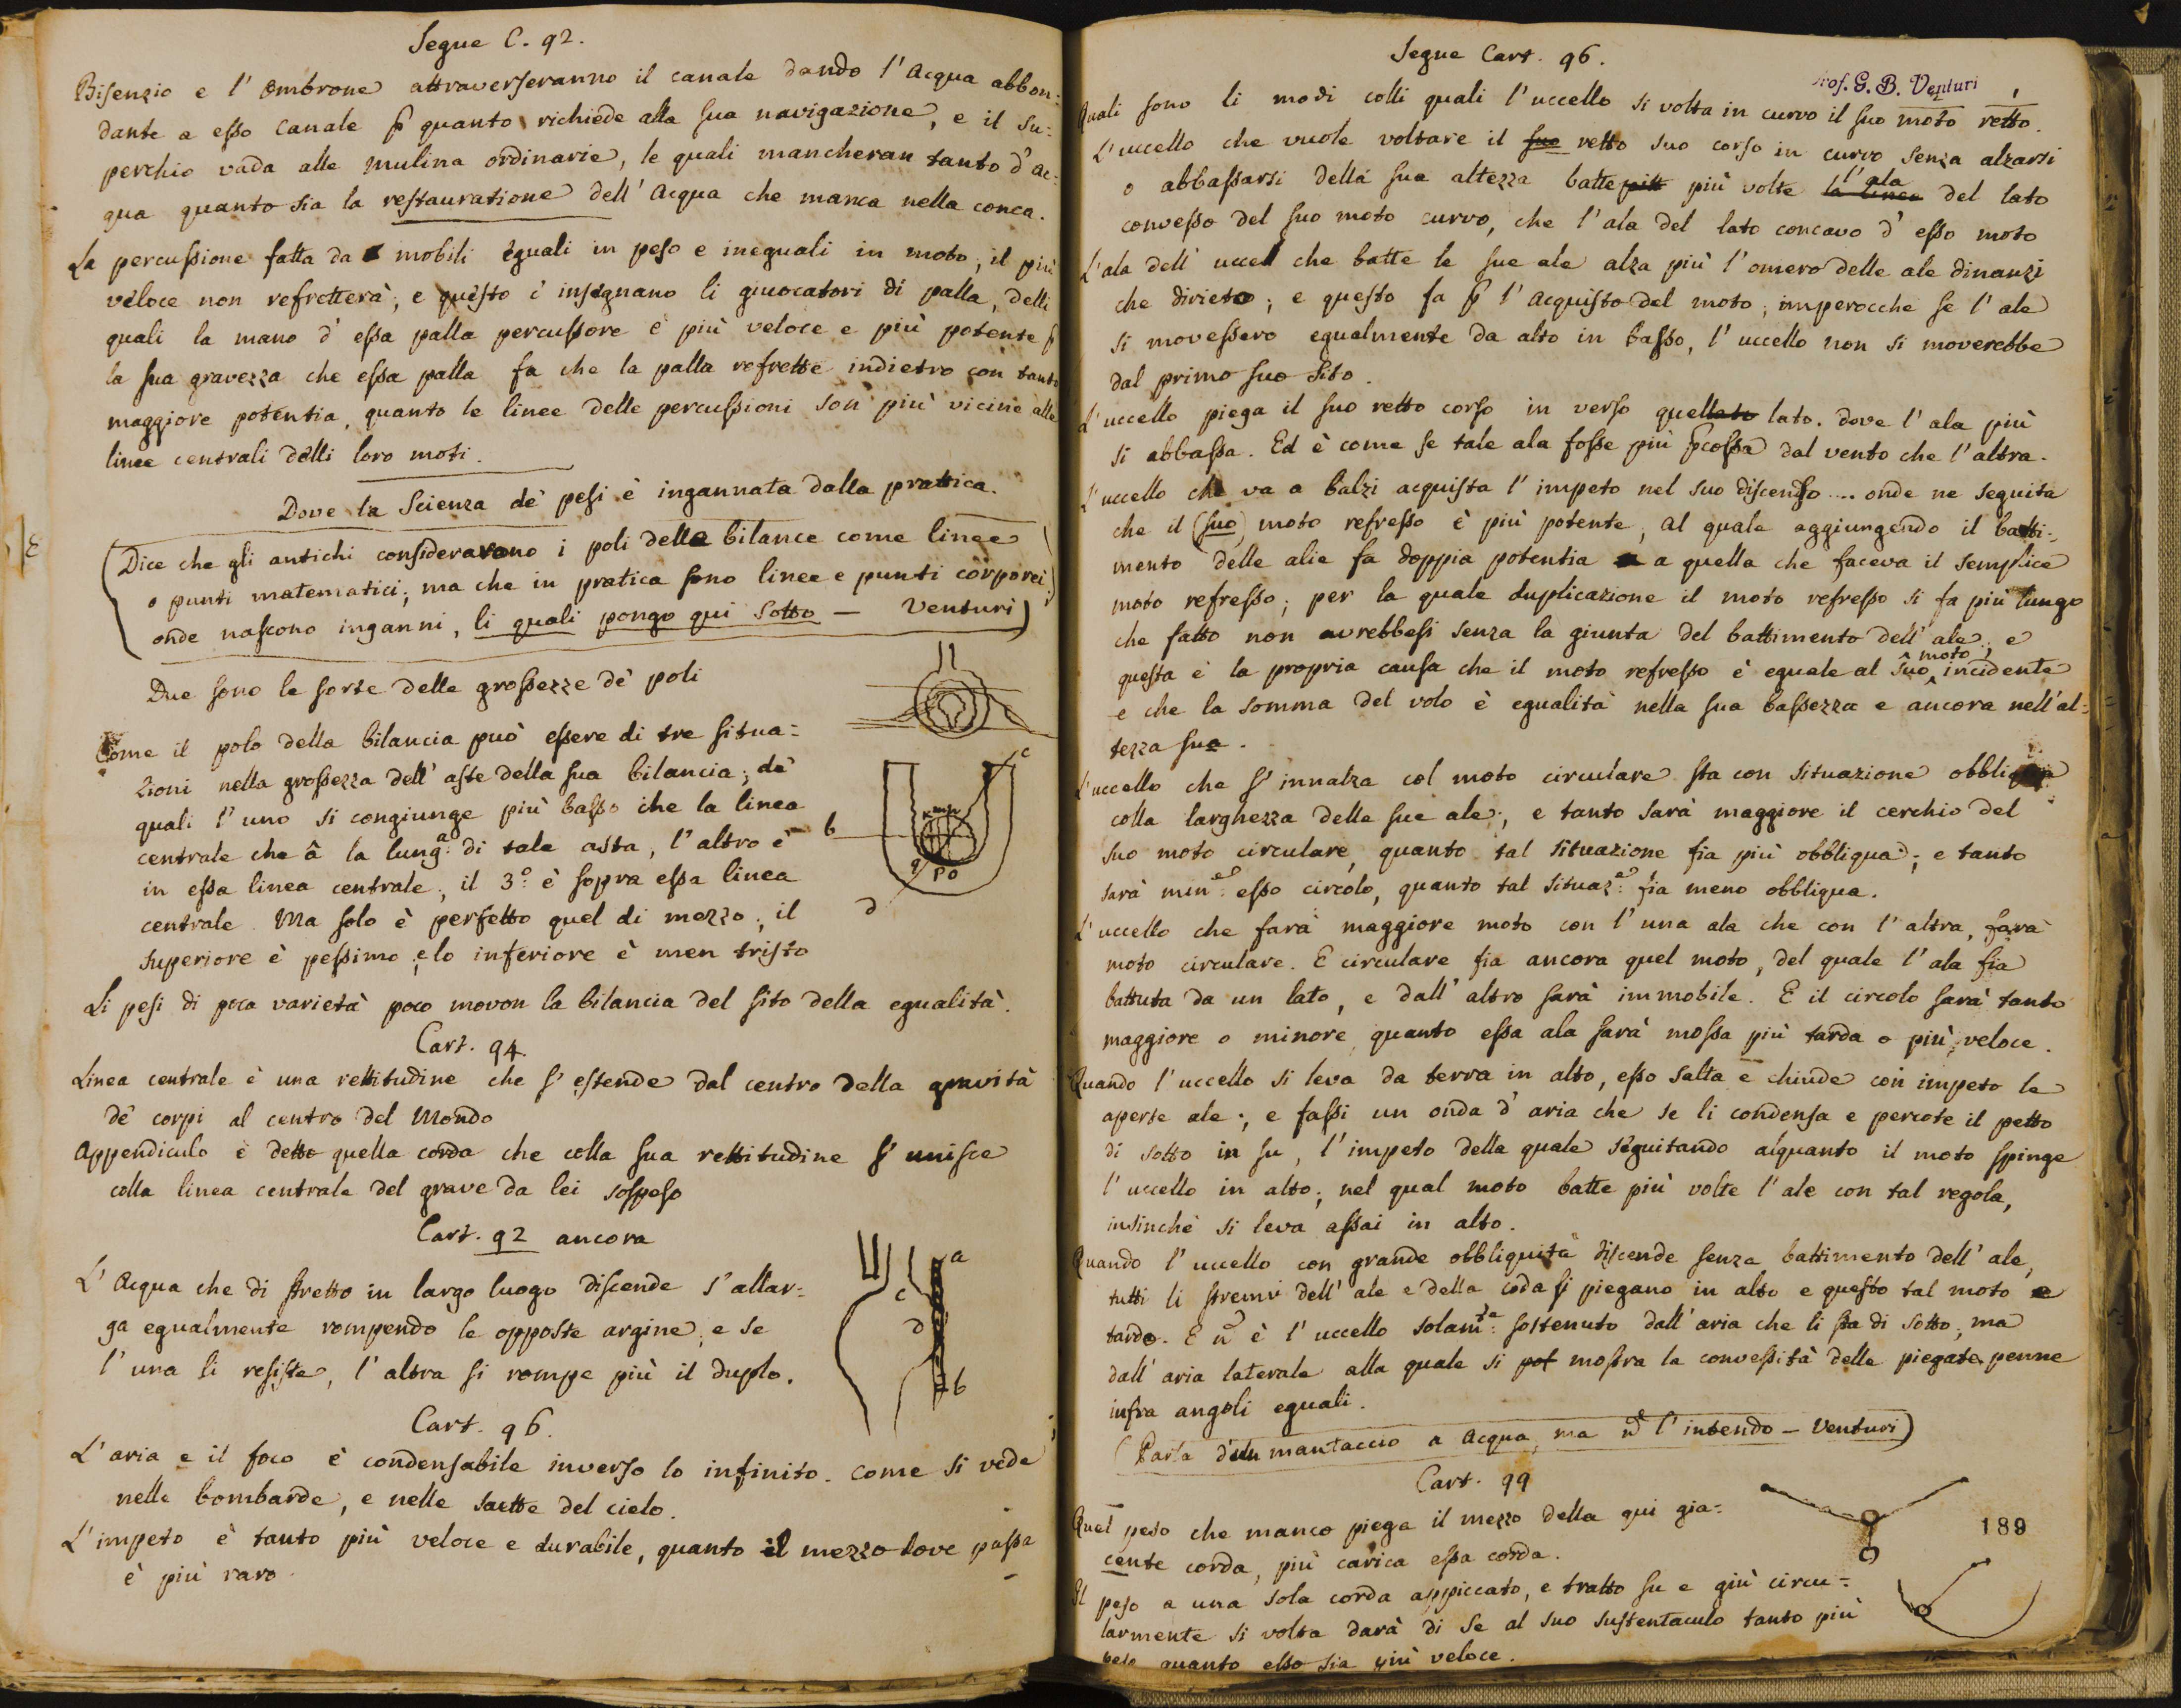 Segue C. 92.
Bisenzio e l' Ombrone attraverseranno il canale dando l' Acqua abbon:
dante a esso canale p quanto richiede alla sua navigazione, e il su:
perchio vada alle mulina ordinarie, le quali mancheran tanto d' ac:
qua quanto sia la restauratione dell' Acqua che manca nella conca.
La percussione fatta da mobili eguali in peso e ineguali in moto, il più
veloce non refretterà; e questo c' insegnano li giuocatori di palla, delli
quali la mano d' essa palla percussore è più veloce e più potente p
la sua gravezza che essa palla fa che la palla refrette indietro con tanto
maggiore potentia, quanto le linee delle percussioni son più vicine alle
linee centrali delli loro moti.
Dove la Scienza de' pesi è ingannata dalla prattica.
(Dice che gli antichi consideravano i poli delle bilance come linee
o punti matematici; ma che in pratica sono linee e punti corporei;
onde nascono inganni, li quali pongo qui sotto — Venturi)
Due sono le sorte delle grossezze de' poli
Come il polo della bilancia può essere di tre situa=
zioni nella grossezza dell' aste della sua bilancia; de'
quali l' uno si congiunge più basso che la linea
centrale che â la lung.a di tale asta, l' altro è
in essa linea centrale, il 3.o è sopra essa linea
centrale. Ma solo è perfetto quel di mezzo; il
superiore è pessimo, e lo inferiore è men tristo
c
b
m n
q p o
d
Li pesi di poca varietà poco movon la bilancia del sito della egualità.
Cart. 94.
Linea centrale è una rettitudine che s' estende dal centro della gravità
de' corpi al centro del Mondo
Appendiculo è detto quella corda che colla sua rettitudine s' unisce
colla linea centrale del grave da lei sospeso
Cart. 92 ancora
L' Acqua che di stretto in largo luogo discende s' allar:
ga egualmente rompendo le opposte argine; e se
l' una li resiste, l' altra si rompe più il duplo.
a
c
d
b
Cart. 96.
L' aria e il foco è condensabile inverso lo infinito. come si vede
nelle bombarde, e nelle saette del cielo.
L' impeto è tanto più veloce e durabile, quanto il mezzo dove passa
è più raro.
Segue Cart. 96.
Prof. G. B. Venturi
Quali sono li modi colli quali l' uccello si volta in curvo il suo moto retto.
L' uccello che vuole voltare il suo retto suo corso in curvo senza alzarsi
o abbassarsi della sua altezza batte più volte la linea l' ala del lato
convesso del suo moto curvo, che l' ala del lato concavo d' esso moto
L' ala dell' uccel che batte le sue ale alza più l' omero delle ale dinanzi
che dirieto; e questo fa p l' acquisto del moto; imperocche se l' ale
si movessero egualmente da alto in basso, l' uccello non si moverebbe
dal primo suo sito.
L' uccello piega il suo retto corso in verso quel lato lato. dove l' ala più
si abbassa. Ed è come se tale ala fosse più pcossa dal vento che l' altra.
L' uccello che va a balzi acquista l' impeto nel suo discenso .... onde ne seguita
che il (suo) moto refresso è più potente, al quale aggiungendo il batti-
mento delle alie fa doppia potentia a quella che faceva il semplice
moto refresso; per la quale duplicazione il moto refresso si fa più lungo
che fatto non avrebbesi senza la giunta del battimento dell' ale; e
questa è la propria causa che il moto refresso è eguale al suo moto incidente
e che la somma del volo è egualità nella sua bassezza e ancora nell' al=
tezza sua.
L' uccello che s' innalza col moto circulare sta con situazione obbliqua
colla larghezza delle sue ale; e tanto sarà maggiore il cerchio del
suo moto circulare, quanto tal situazione fia più obbliqua; e tanto
sarà min.e esso circolo, quanto tal situaz.e fia meno obbliqua.
L' uccello che farà maggiore moto con l' una ala che con l' altra, farà
moto circulare. E circulare fia ancora quel moto, del quale l' ala fia
battuta da un lato, e dall' altro sarà immobile. E il circolo sarà tanto
maggiore o minore, quanto essa ala sarà mossa più tarda o più veloce.
Quando l' uccello si leva da terra in alto, esso salta e chiude con impeto le
aperte ale; e fassi un onda d' aria che se li condensa e percote il petto
di sotto in su, l' impeto della quale seguitando alquanto il moto spinge
l' uccello in alto; nel qual moto batte più volte l' ale con tal regola,
insinchè si leva assai in alto.
Quando l' uccello con grande obbliquità discende senza battimento dell' ale,
tutti li stremi dell' ale e della coda si piegano in alto e questo tal moto e
tardo. E ñ è l' uccello solam.te sostenuto dall' aria che li sta di sotto; ma
dall' aria laterale alla quale si pot mostra la convessità delle piegate penne
infra angoli eguali.
(Parla d' un mantaccio a Acqua, ma ñ l' intendo — Venturi)
Cart. 99
Quel peso che manco piega il mezzo della qui gia=
cente corda, più carica essa corda.
Il peso a una sola corda appiccato, e tratto su e giù circu=
larmente si volta darà di se al suo sustentaculo tanto più
peso quanto esso sia più veloce.
189